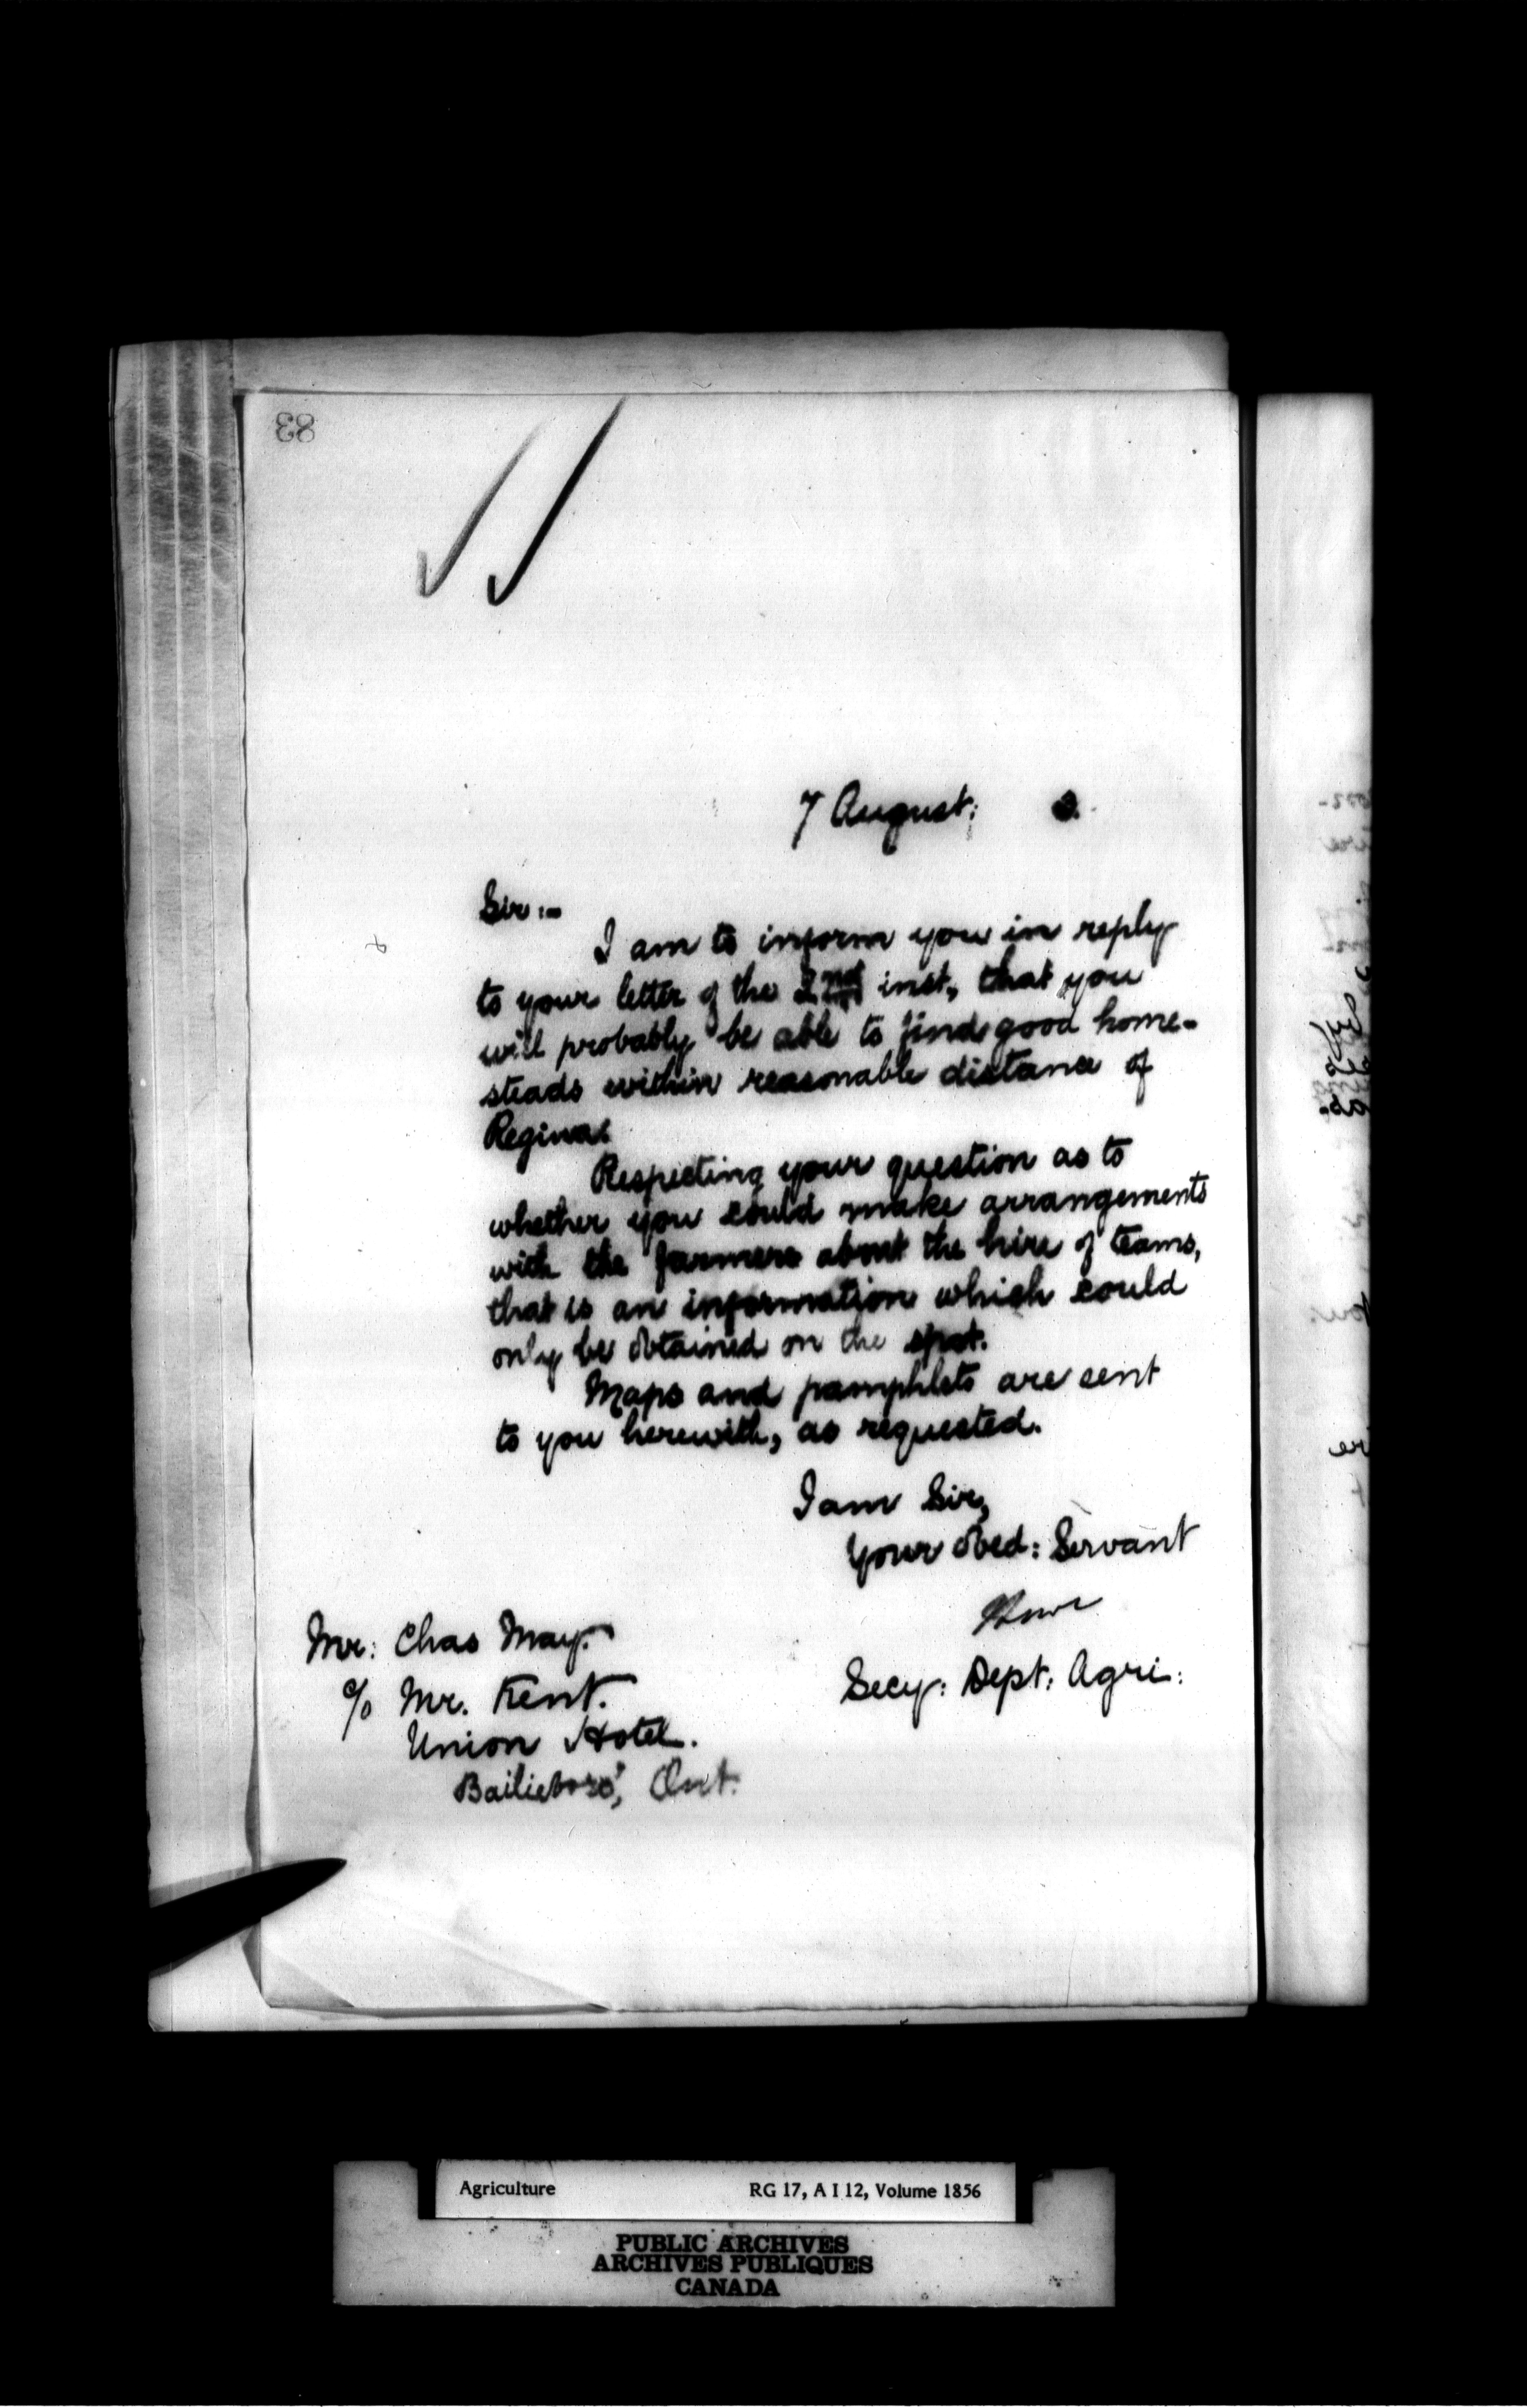 83
7 August: 3.
Sir:-
I am to inform you in reply
to your letter of the 2nd inst, that you
will probably be able to find good home-
steads within reasonable distance of
Regina.
Respecting your question as to
whether you could make arrangements
with the farmers about the hire of teams,
that is an information which could
only be obtained on the spot.
Maps and pamphlets are sent
to you herewith, as requested.
I am Sir,
Your obed: Servant
Secy: Dept: Agri:
Mr: Chas May.
c/o Mr. Kent.
Union Hotel.
Bailieboro', Ont.
Agriculture RG 17, A I 12, Volume 1856
PUBLIC ARCHIVES
ARCHIVES PUBLIQUES
CANADA